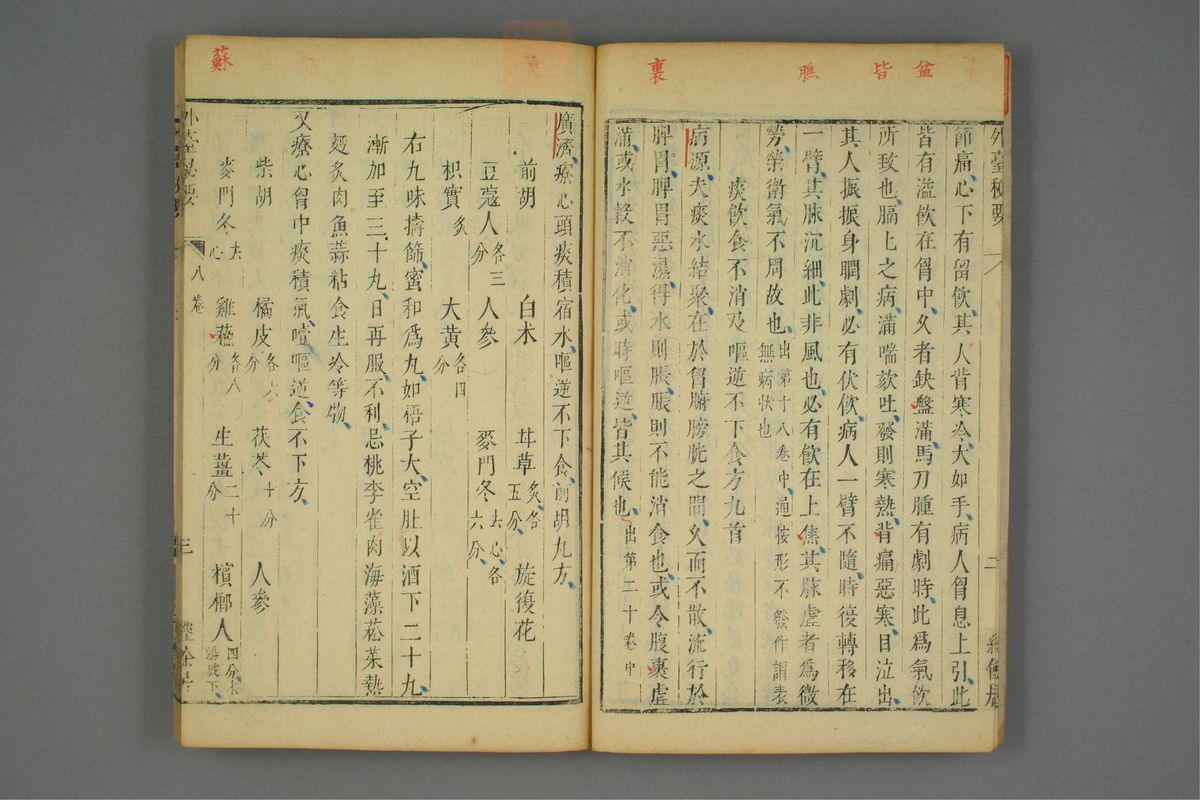 盆
皆
膲
裏
外臺秘要
八
二
經餘居
節痛、心下有留飲、其人背寒冷大如手、病人胷息上引、此
皆有溢飲在胷中、久者缺盤滿、馬刀腫有劇時、此爲氣飲
所致也、膈上之病、滿喘欬吐、發則寒熱、背痛惡寒、目泣出、
其人振振身瞤劇、必有伏飲、病人一臂不隨、時復轉移在
一臂、其脉沉細、此非風也、必有飲在上焦、其脉虛者爲微
勞、榮衛氣不周故也、出第十八卷中、通按形不發作謂表無病狀也
痰飲食不消及嘔逆不下食方九首
病源、夫痰水結聚、在於胷腑膀胱之間、久而不散、流行於
脾胃、脾胃惡濕、得水則脹、脹則不能消食也、或令腹裹虛
滿、或水穀不消化、或時嘔逆、皆其候也、出第二十卷中
蘇
廣濟、療心頭痰積宿水、嘔逆不下食、前胡丸方、
前胡 白术 甘草炙各五分、 旋復花
豆蔻人各三分 人參 麥門冬去心各六分、
枳實炙 大黃各四分
右九味擣篩、蜜和爲丸、如梧子大、空肚以酒下二十九、
漸加至三十丸、日再服、不利、忌桃李雀肉海藻菘菜熱
麪炙肉魚蒜粘食生冷等物、
又療心胷中痰積氣噎、嘔逆、食不下方、
柴胡 橘皮各六分 茯苓十分 人參
麥門冬去心 雞蘓各八分 生薑二十分 檳榔人四分、末湯成下、
外臺秘要
八卷
三
經餘居